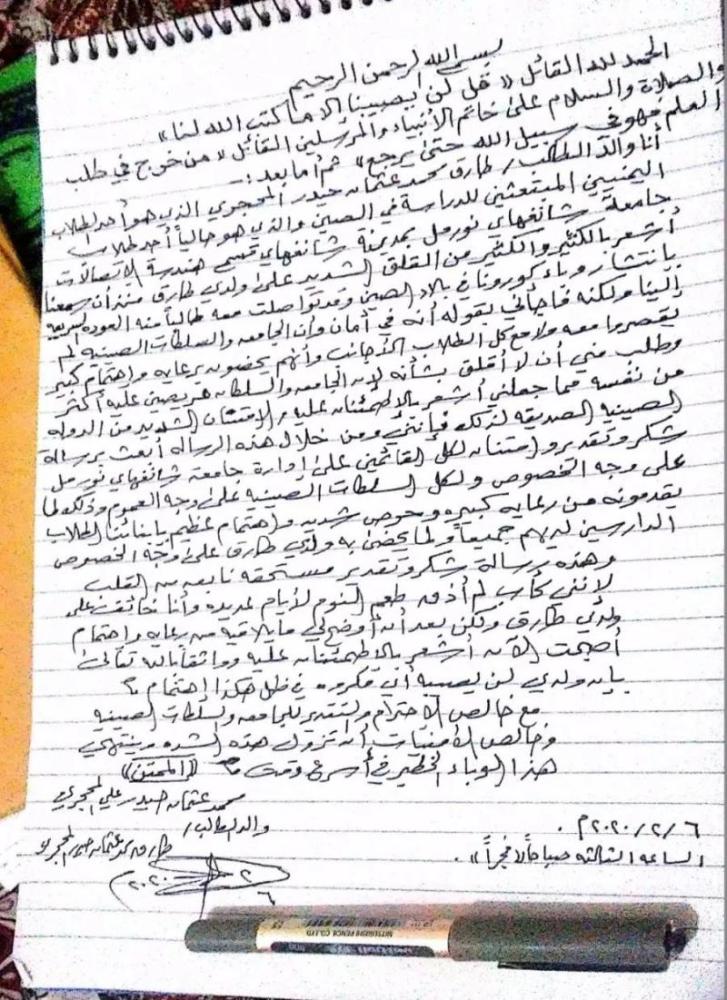 بسم الله الرحمن الرحيم
الحمد لله القائل «قل لن يصيبنا إلا ما كتب الله لنا»
والصلاة والسلام على خاتم الأنبياء والمرسلين القائل «من خرج في طلب
العلم فهو في سبيل الله حتى يرجع» ثم أما بعد :-
أنا والد الطالب / طارق محمد عثمان حيدر المحجري الذي هو أحد الطلاب
اليمنيين المبتعثين للدراسة في الصين والذي هو حالياً أحد طلاب
جامعة شانغهاي نورمل بمدينة شانغهاي قسم هندسة الاتصالات
أشعر بالكثير والكثير من القلق الشديد على ولدي طارق منذ أن سمعنا
بانتشار وباء كورونا في بلاد الصين وقد تواصلت معه طالباً منه العوده السريعه
إلينا ولكنه فاجأني بقوله أنه في أمان وأن الجامعه والسلطات الصينيه لم
يقصروا معه ولا مع كل الطلاب الأجانب وأنهم يحضون برعايه واهتمام كبير
وطلب مني أن لا أقلق بشأنه لان الجامعه والسلطات حريصين عليه أكثر
من نفسه مما جعلني أشعر بالاطمئنان عليه والامتنان الشديد من الدوله
الصينيه الصديقه لذلك فإنني ومن خلال هذه الرساله أبعث برسالة
شكر وتقدير وامتنان لكل القائمين على إدارة جامعة شانغهاي نورمل
على وجه الخصوص ولكل السلطات الصينيه على وجه العموم وذلك لما
يقدمونه من رعايه كبيره وحرص شديد واهتمام عظيم بابنائنا الطلاب
الدارسين لديهم جميعاً ولما يحضى به ولدي طارق على وجه الخصوص
وهذه رسالة شكر وتقدير مستحقه نابعه من القلب
لإنني كأب لم أذق طعم النوم لأيام عديده وأنا خائف على
ولدي طارق ولكن بعد أن أوضح لي ما يلاقيه من رعايه واهتمام
أصبحت الآن أشعر بالاطمئنان عليه وواثقاً بالله تعالى
بان ولدي لن يصيبه أي مكروه في ظل هكذا إهتمام
مع خالص الاحترام والتقدير للجامعه والسلطات الصينيه
وخالص الأمنيات أن تزول هذه الشده وينتهي
هذا الوباء الخطير في أسرع وقت «الممتن»
محمد عثمان حيدر علي المحجري
والد الطالب /
طارق محمد عثمان حيدر المحجري
٢٠٢٠/٢/٦م .
الساعه الثالثه صباحاً «فجراً» .
٢٠٢٠
٢
٦
MITSUBISHI PENCIL CO.LTD